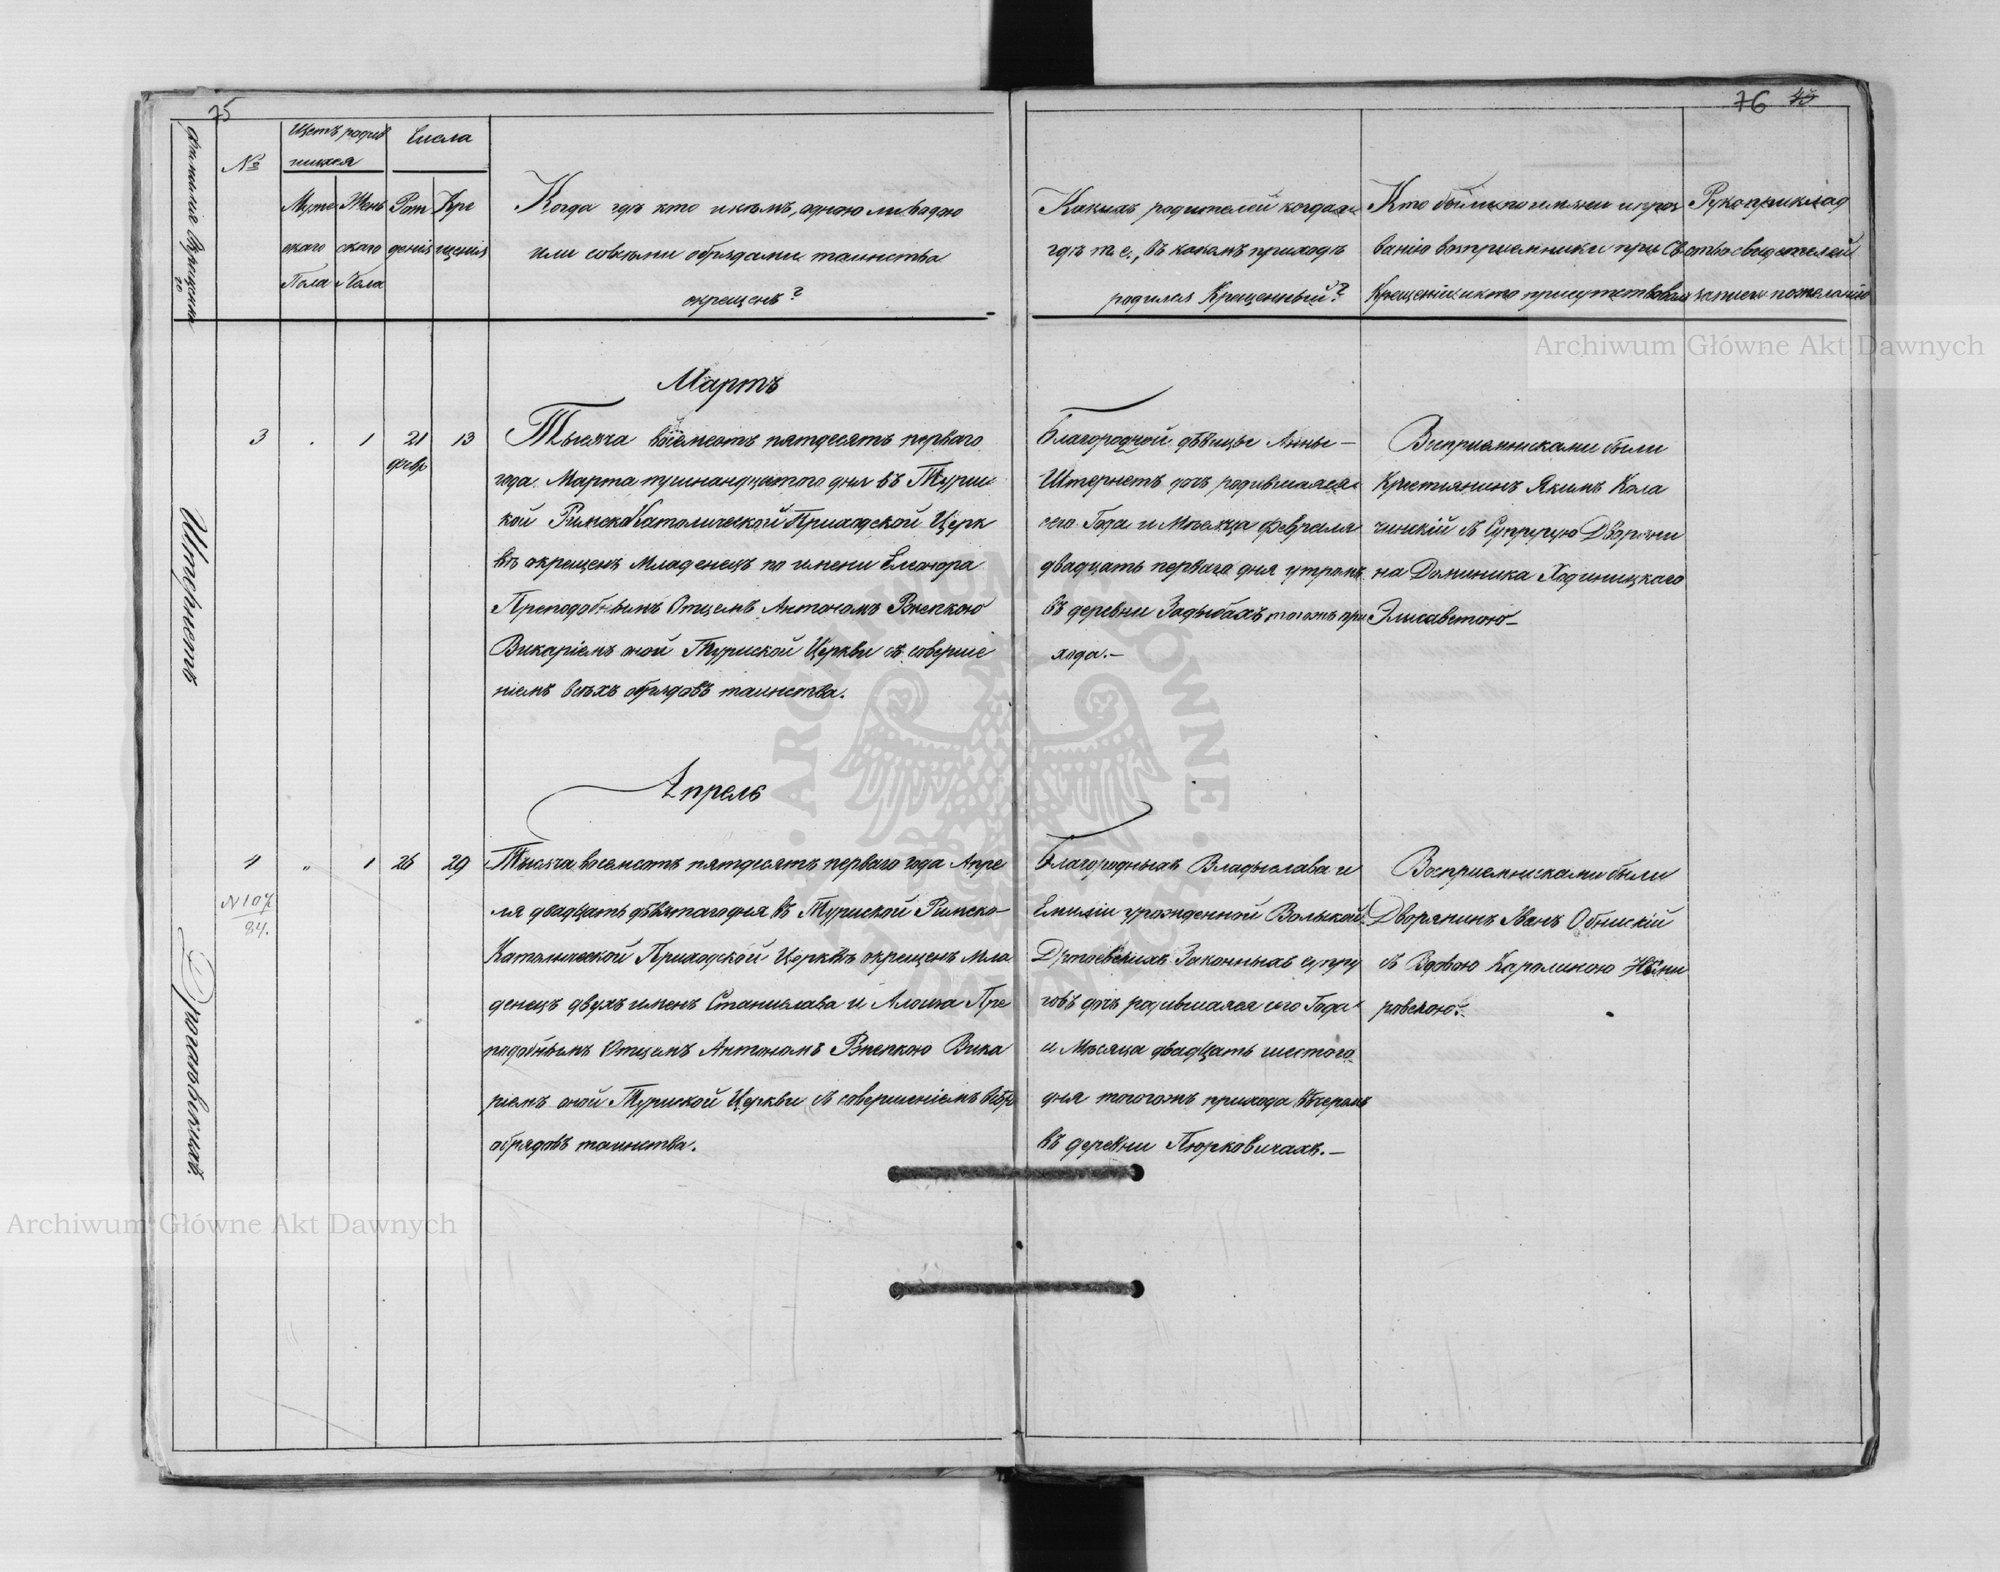 75
76 43
Фамилiе Окрещеннаго
№
Щетъ родив
шихся
Числа
Муже Жень Рож Кре
скаго скаго денiя щенiя
Пола Пола
Когда гдѣ кто и кѣмъ, одною ли водою
или со всѣми обрядами таинства
окрещенъ?
Какихъ родителей когда и
гдѣ т. е., въ какомъ приходѣ
родился Крещенный?
Кто были по имяни и проз
ванiю воспрiемники при Св
Крещенiи и кто присутствовал
Рукоприклад
ство свидетелей
записи по желанiю
Archiwum Główne Akt Dawnych
Мартъ
3 . 1 21 13
февр
Тысяча восемсотъ пятдесятъ перваго
года Марта тринандцатого дня въ Турис
кой РимскоКатолической Приходской Церк
вѣ окрещенъ Младенецъ по имени Елеонора
Преподобнымъ Отцемъ Антономъ Рпепкою
Викарiемъ оной Туриской Церкви съ соверше
нiемъ всѣхъ обрядовъ таинства.
Благородной дѣвицы Анны —
Штернетъ дочь родившаяся
сего Года и Мѣсяца февраля
двадцать перваго дня утромъ
въ деревни Задыбахъ тогожъ при
хода.—
Воспрiемниками были
Крестьянинъ Якимъ Кола
чинскiй съ Супругою Дворяни
на Доминика Ходиницкаго
Элисаветою—
Штернетъ
Апрель
4 „ 1 26 29
N 107
84.
Тысяча восемсотъ пятдесятъ перваго года Апре
ля двадцать дѣвятаго дня въ Туриской Римско—
Католической Приходской Церквѣ окрещенъ Мла
денецъ двухъ именъ Станислава и Алоиза Пре
подобнымъ Отцемъ Антономъ Рпепкою Вика
рiемъ оной Туриской Церкви съ совершенiемъ всѣхъ
обрядовъ таинства.
Благородныхъ Владыслава и
Емилiи урожденной Волыкой
Законныхъ супру
говъ дочь родившаяся сего Года
и Мѣсяца двадцать шестого
дня тогожъ прихода Вѣчеромъ
въ деревни Пюрковичахъ.—
Воспрiемниками были
Дворянинъ Иванъ Обнискiй
съ Вдовою Каролиною
ровскою.
Archiwum Główne Akt Dawnych
ARCHIWUM GŁÓWNE